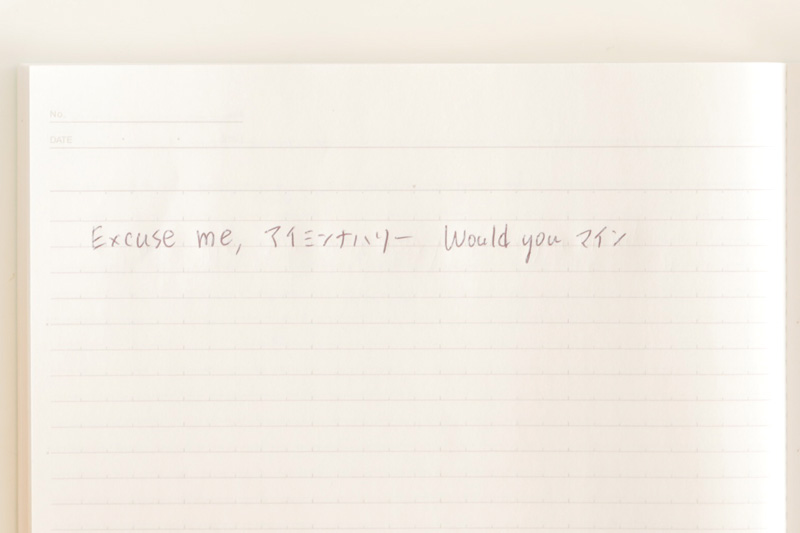 No.
DATE
Excuse me, アイミンナハリー Would you マイン